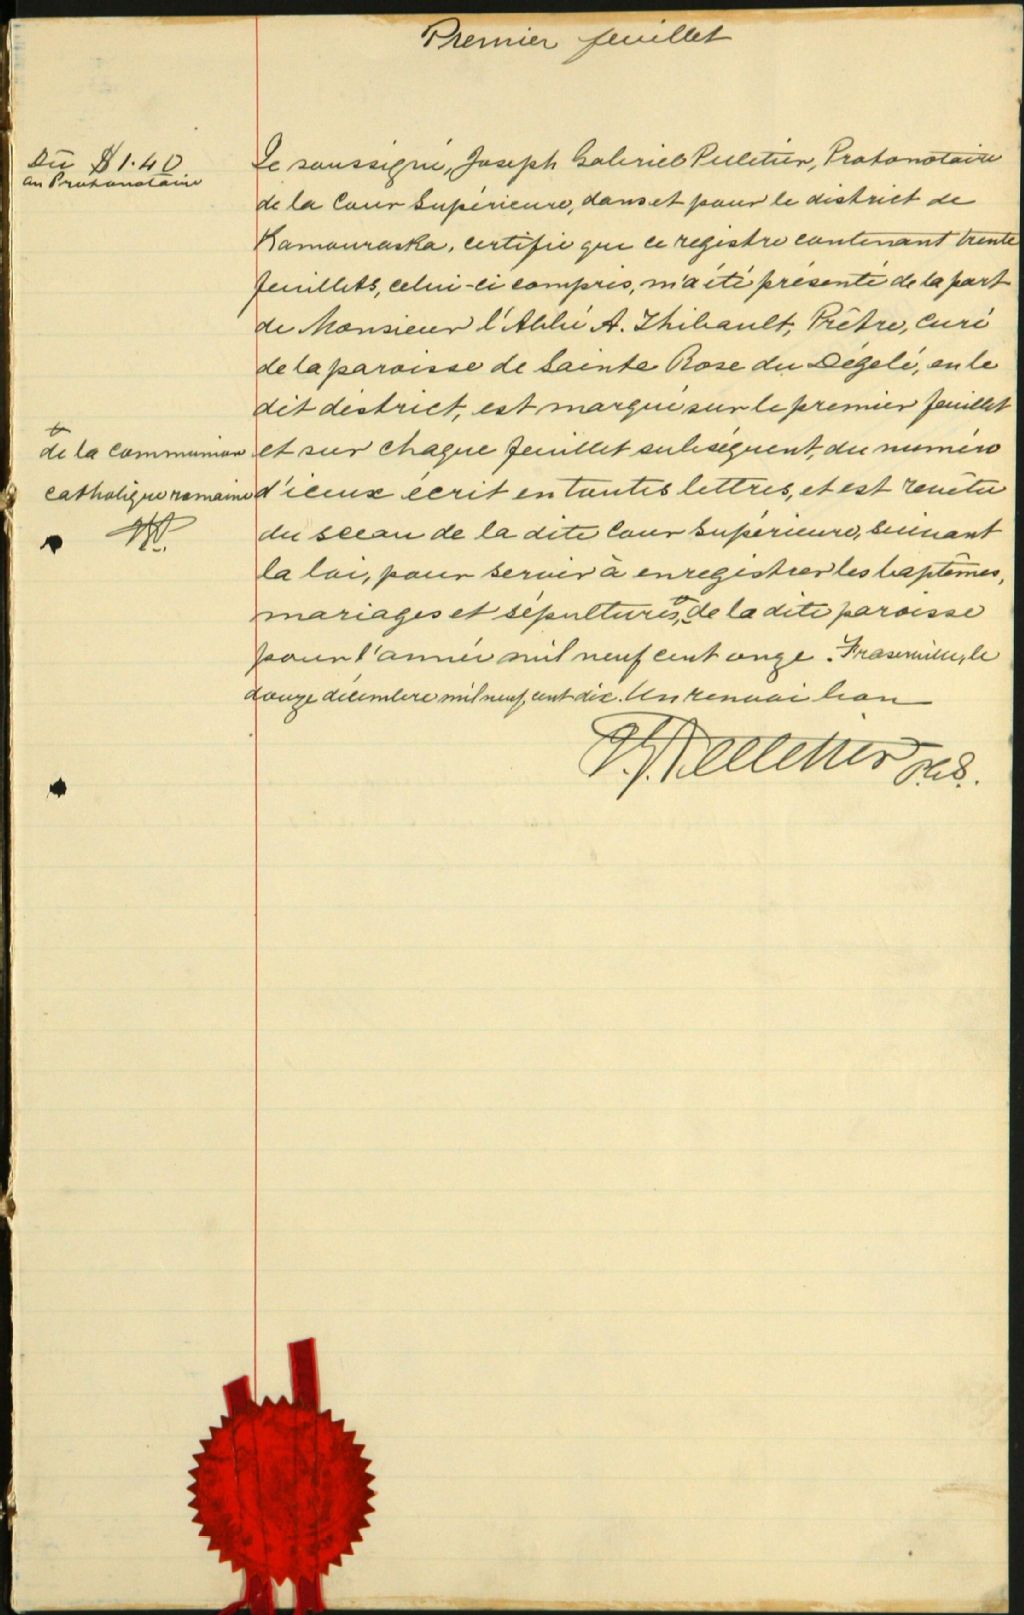 Premier feuillet
Dû $1.40
au Protonotaire
Je soussigné, Joseph Gabriel Pelletier, Protonotaire
de la Cour Supérieure, dans et pour le district de
Kamouraska, certifie que ce registre contenant trente
feuillets, celui-ci compris, m'a été présenté de la part
de Monsieur l'Abbé A. Thibault, Prêtre, Curé
de la paroisse de Sainte Rose du Dégelé, en le
dit district, est marqué sur le premier feuillet
et sur chaque feuillet subséquent, du numéro
d'iceux écrit en toutes lettres, et est revêtu
du sceau de la dite Cour Supérieure, suivant
la loi, pour servir à enregistrer les baptêmes,
mariages et sépultures, + de la dite paroisse
pour l'année mil neuf cent onze. Fraserville, le
douze décembre mil neuf cent dix. Un renvoi bon
J.G. Pelletier P.C.S.
+
de la communion
catholique romaine